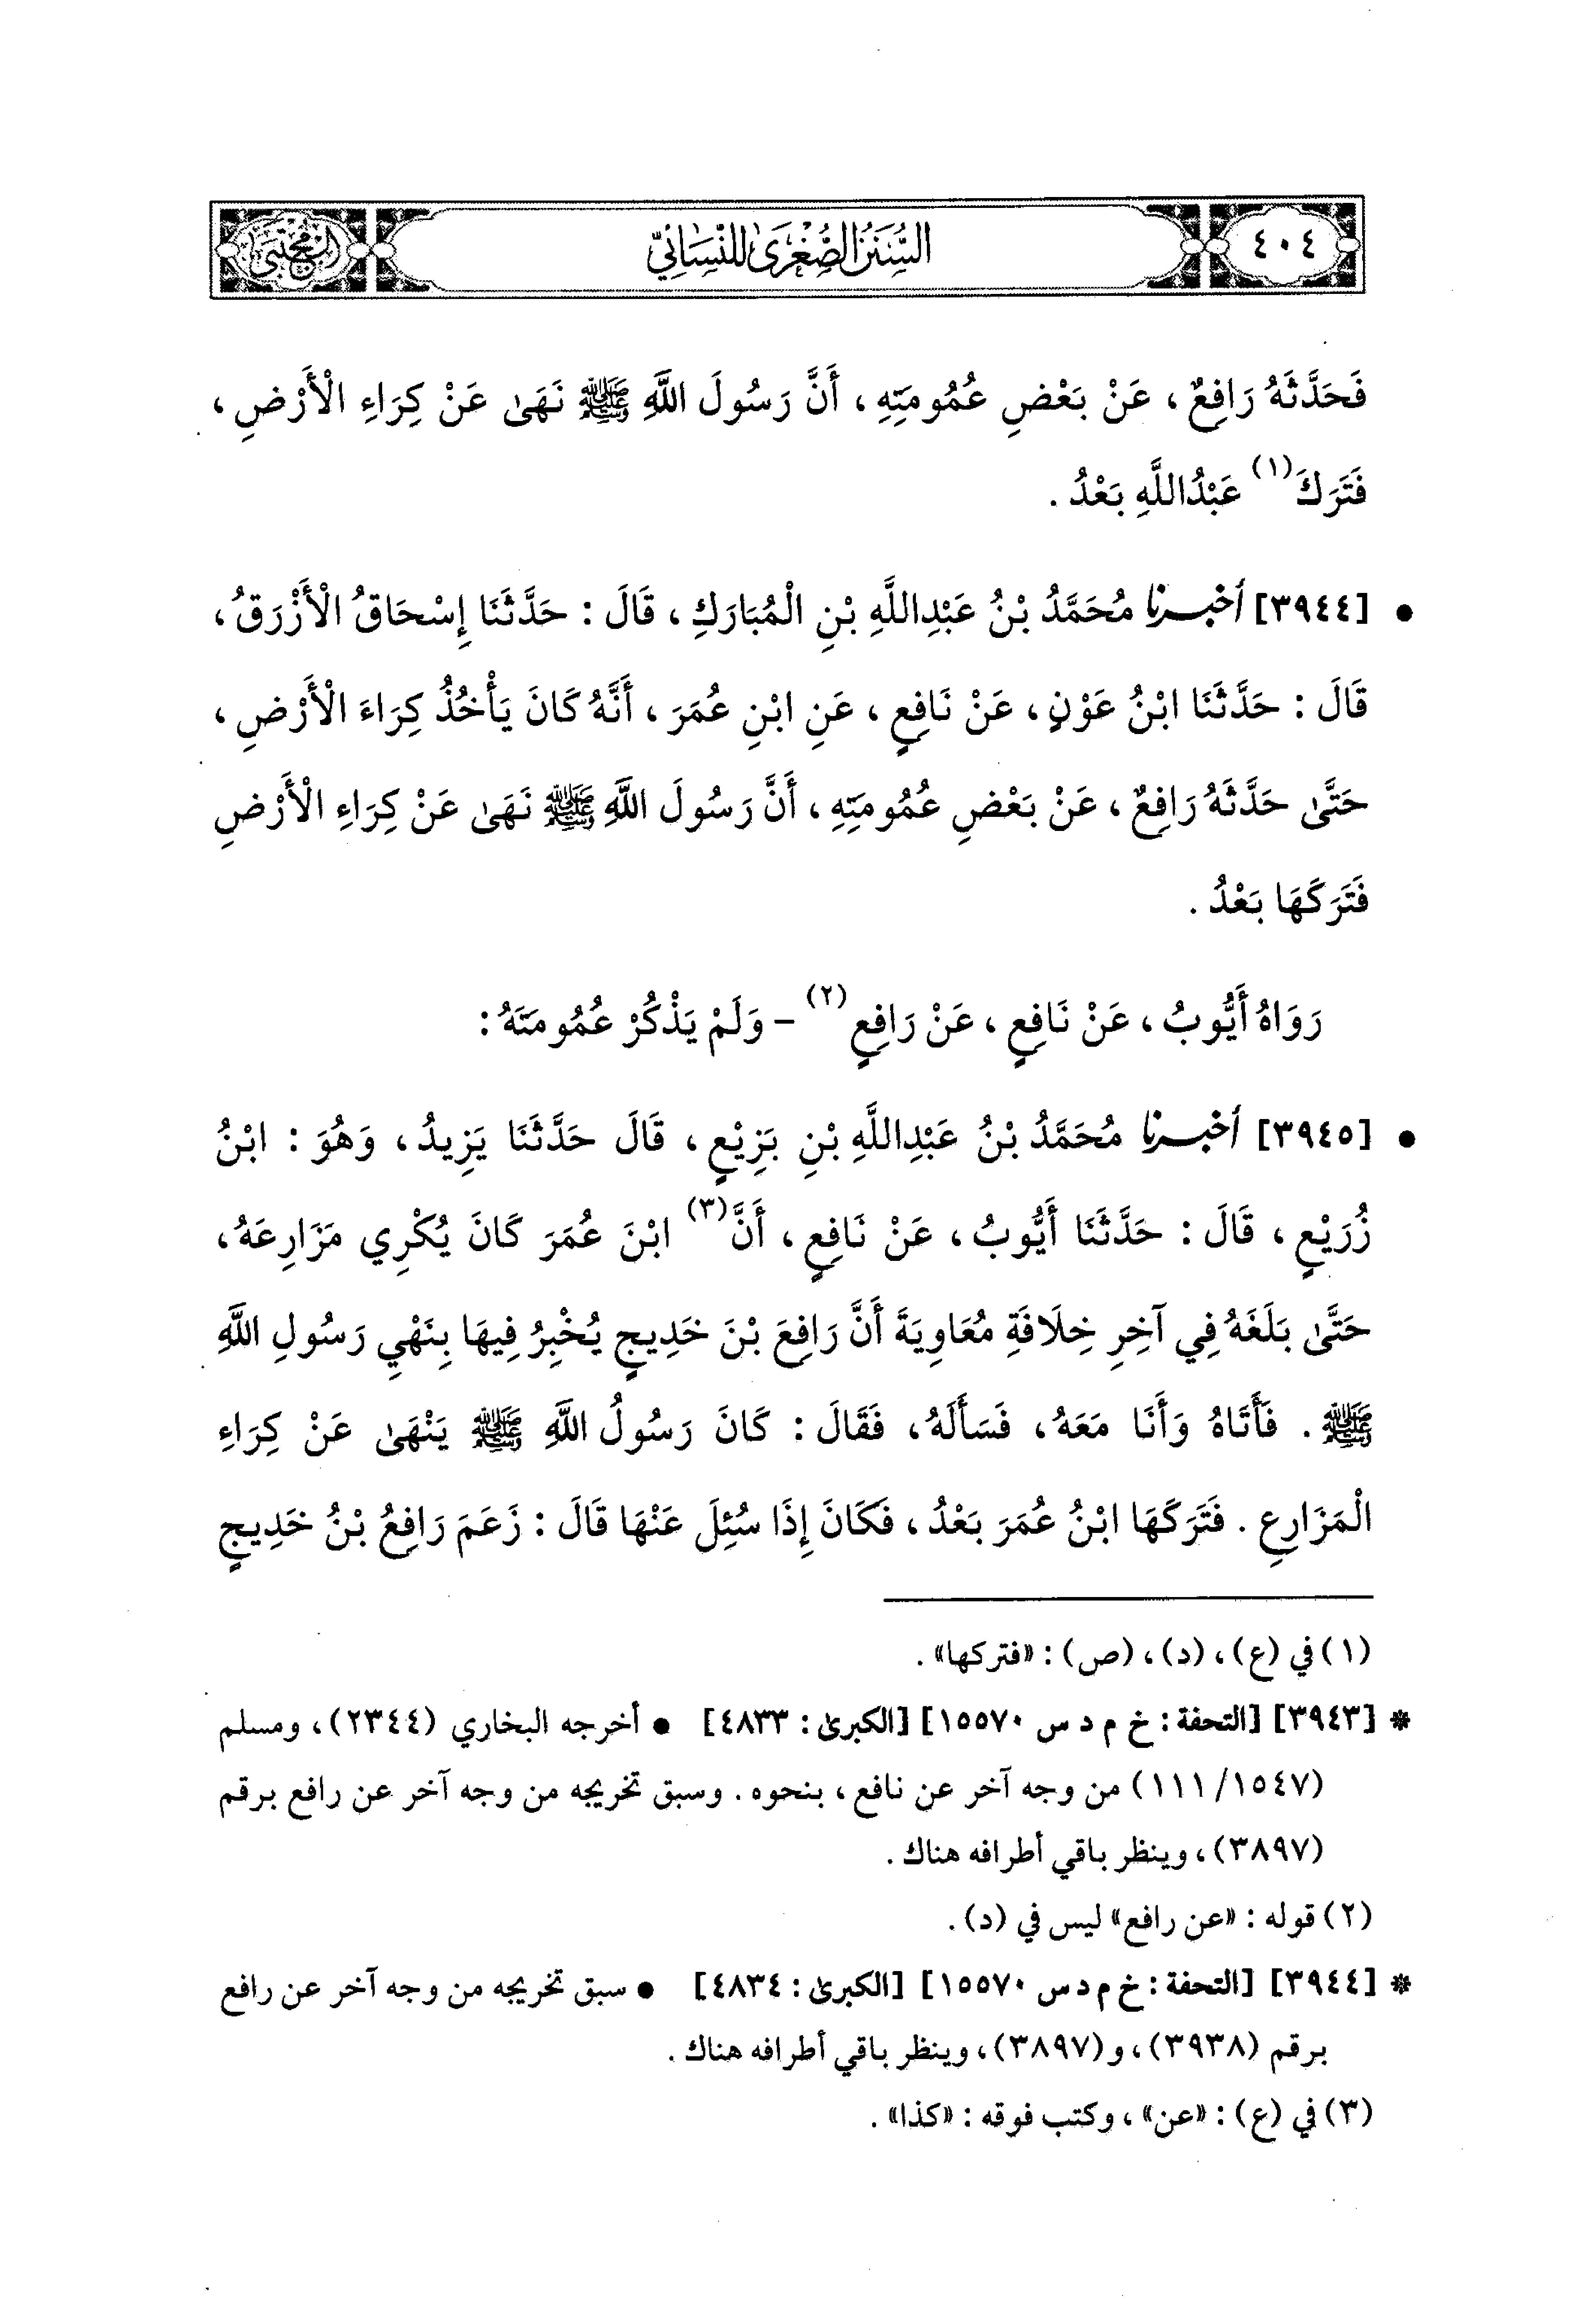 ٤٠٤
السُّنَنُ الصُّغْرَىٰ لِلنَّسَائِيِّ
المجتبى
فَحَدَّثَهُ رَافِعٌ، عَنْ بَعْضِ عُمُومَتِهِ، أَنَّ رَسُولَ اللَّهِ ﷺ نَهَىٰ عَنْ كِرَاءِ الْأَرْضِ،
فَتَرَكَ(١) عَبْدُاللَّهِ بَعْدُ.
• [٣٩٤٤] أخبرنا مُحَمَّدُ بْنُ عَبْدِاللَّهِ بْنِ الْمُبَارَكِ، قَالَ: حَدَّثَنَا إِسْحَاقُ الْأَزْرَقُ،
قَالَ: حَدَّثَنَا ابْنُ عَوْنٍ، عَنْ نَافِعٍ، عَنِ ابْنِ عُمَرَ، أَنَّهُ كَانَ يَأْخُذُ كِرَاءَ الْأَرْضِ،
حَتَّىٰ حَدَّثَهُ رَافِعٌ، عَنْ بَعْضِ عُمُومَتِهِ، أَنَّ رَسُولَ اللَّهِ ﷺ نَهَىٰ عَنْ كِرَاءِ الْأَرْضِ
فَتَرَكَهَا بَعْدُ.
رَوَاهُ أَيُّوبُ، عَنْ نَافِعٍ، عَنْ رَافِعٍ(٢) - وَلَمْ يَذْكُرْ عُمُومَتَهُ:
• [٣٩٤٥] أخبرنا مُحَمَّدُ بْنُ عَبْدِاللَّهِ بْنِ بَزِيْعٍ، قَالَ حَدَّثَنَا يَزِيدُ، وَهُوَ: ابْنُ
زُرَيْعٍ، قَالَ: حَدَّثَنَا أَيُّوبُ، عَنْ نَافِعٍ، أَنَّ(٣) ابْنَ عُمَرَ كَانَ يُكْرِي مَزَارِعَهُ،
حَتَّىٰ بَلَغَهُ فِي آخِرِ خِلَافَةِ مُعَاوِيَةَ أَنَّ رَافِعَ بْنَ خَدِيجٍ يُخْبِرُ فِيهَا بِنَهْيِ رَسُولِ اللَّهِ
ﷺ. فَأَتَاهُ وَأَنَا مَعَهُ، فَسَأَلَهُ، فَقَالَ: كَانَ رَسُولُ اللَّهِ ﷺ يَنْهَىٰ عَنْ كِرَاءِ
الْمَزَارِعِ. فَتَرَكَهَا ابْنُ عُمَرَ بَعْدُ، فَكَانَ إِذَا سُئِلَ عَنْهَا قَالَ: زَعَمَ رَافِعُ بْنُ خَدِيجٍ
(١) في (ع)، (د)، (ص): «فتركها».
* [٣٩٤٣] [التحفة: خ م د س ١٥٥٧٠] [الكبرىٰ: ٤٨٣٣] • أخرجه البخاري (٢٣٤٤)، ومسلم
(١١١/١٥٤٧) من وجه آخر عن نافع، بنحوه. وسبق تخريجه من وجه آخر عن رافع برقم
(٣٨٩٧)، وينظر باقي أطرافه هناك.
(٢) قوله: «عن رافع» ليس في (د).
* [٣٩٤٤] [التحفة: خ م د س ١٥٥٧٠] [الكبرىٰ: ٤٨٣٤] • سبق تخريجه من وجه آخر عن رافع
برقم (٣٩٣٨)، و(٣٨٩٧)، وينظر باقي أطرافه هناك.
(٣) في (ع): «عن»، وكتب فوقه: «كذا».